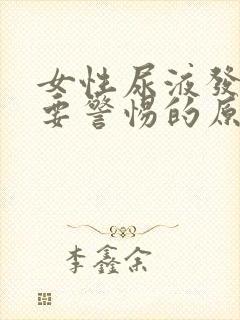 女性尿液發
要警惕的原
李鑫余